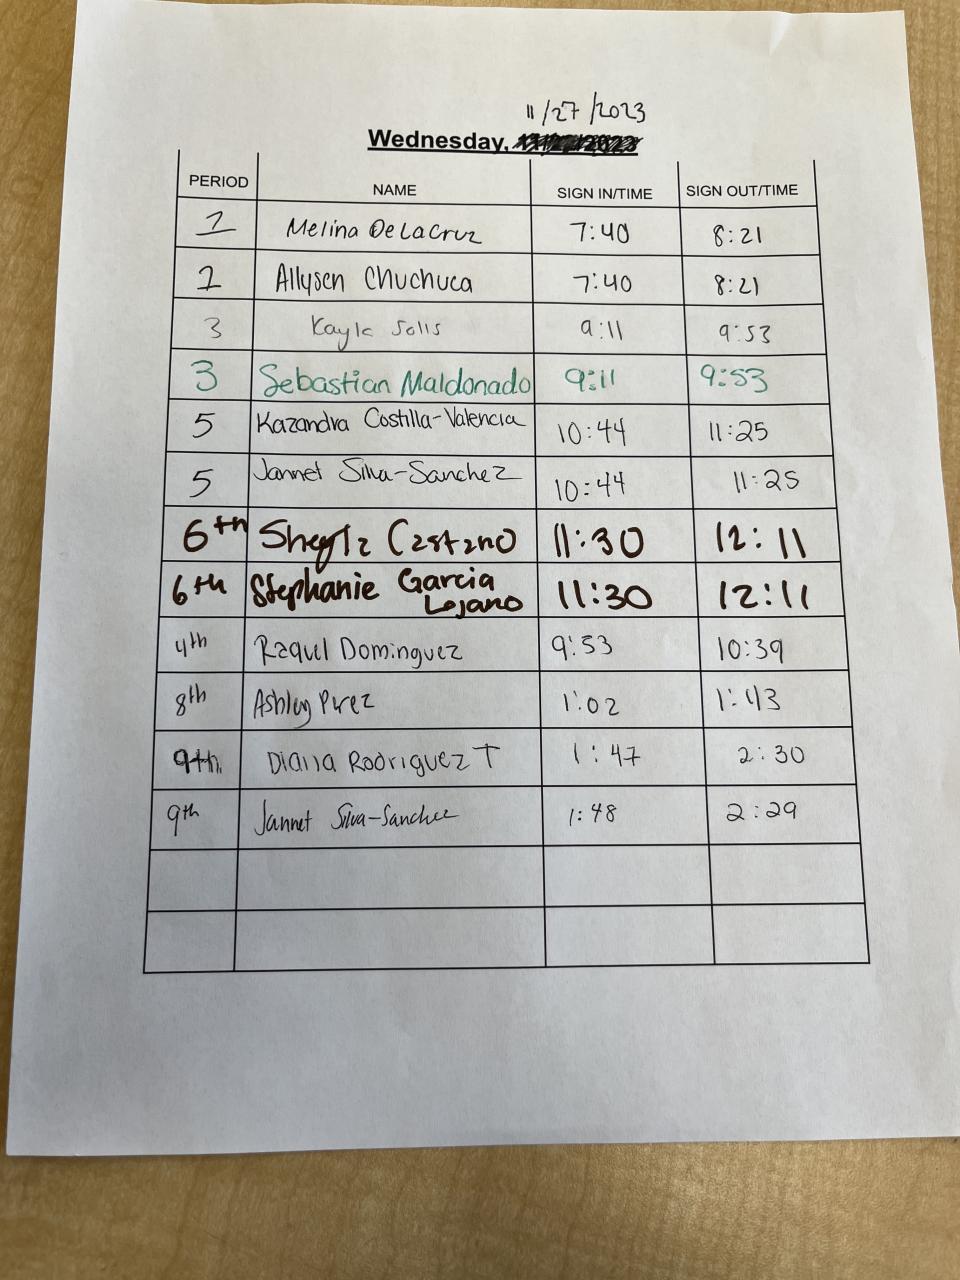 11/27/2023
Wednesday,
PERIOD NAME SIGN IN/TIME SIGN OUT/TIME
1 Melina DeLaCruz 7:40 8:21
1 Allysen Chuchuca 7:40 8:21
3 Kayla Solis 9:11 9:53
3 Sebastian Maldonado 9:11 9:53
5 Kazandra Costilla-Valencia 10:44 11:25
5 Jannet Silva-Sanchez 10:44 11:25
6th Sheyla Castano 11:30 12:11
6th Stephanie Garcia 11:30 12:11
Lojano
4th Raquel Dominguez 9:53 10:39
8th Ashley Perez 1:02 1:43
9th. Diana Rodriguez T 1:47 2:30
9th Jannet Silva-Sanchez 1:48 2:29